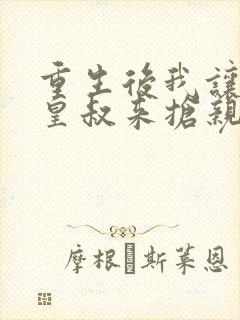 重生後我讓
皇叔来搶親
摩根·斯萊恩